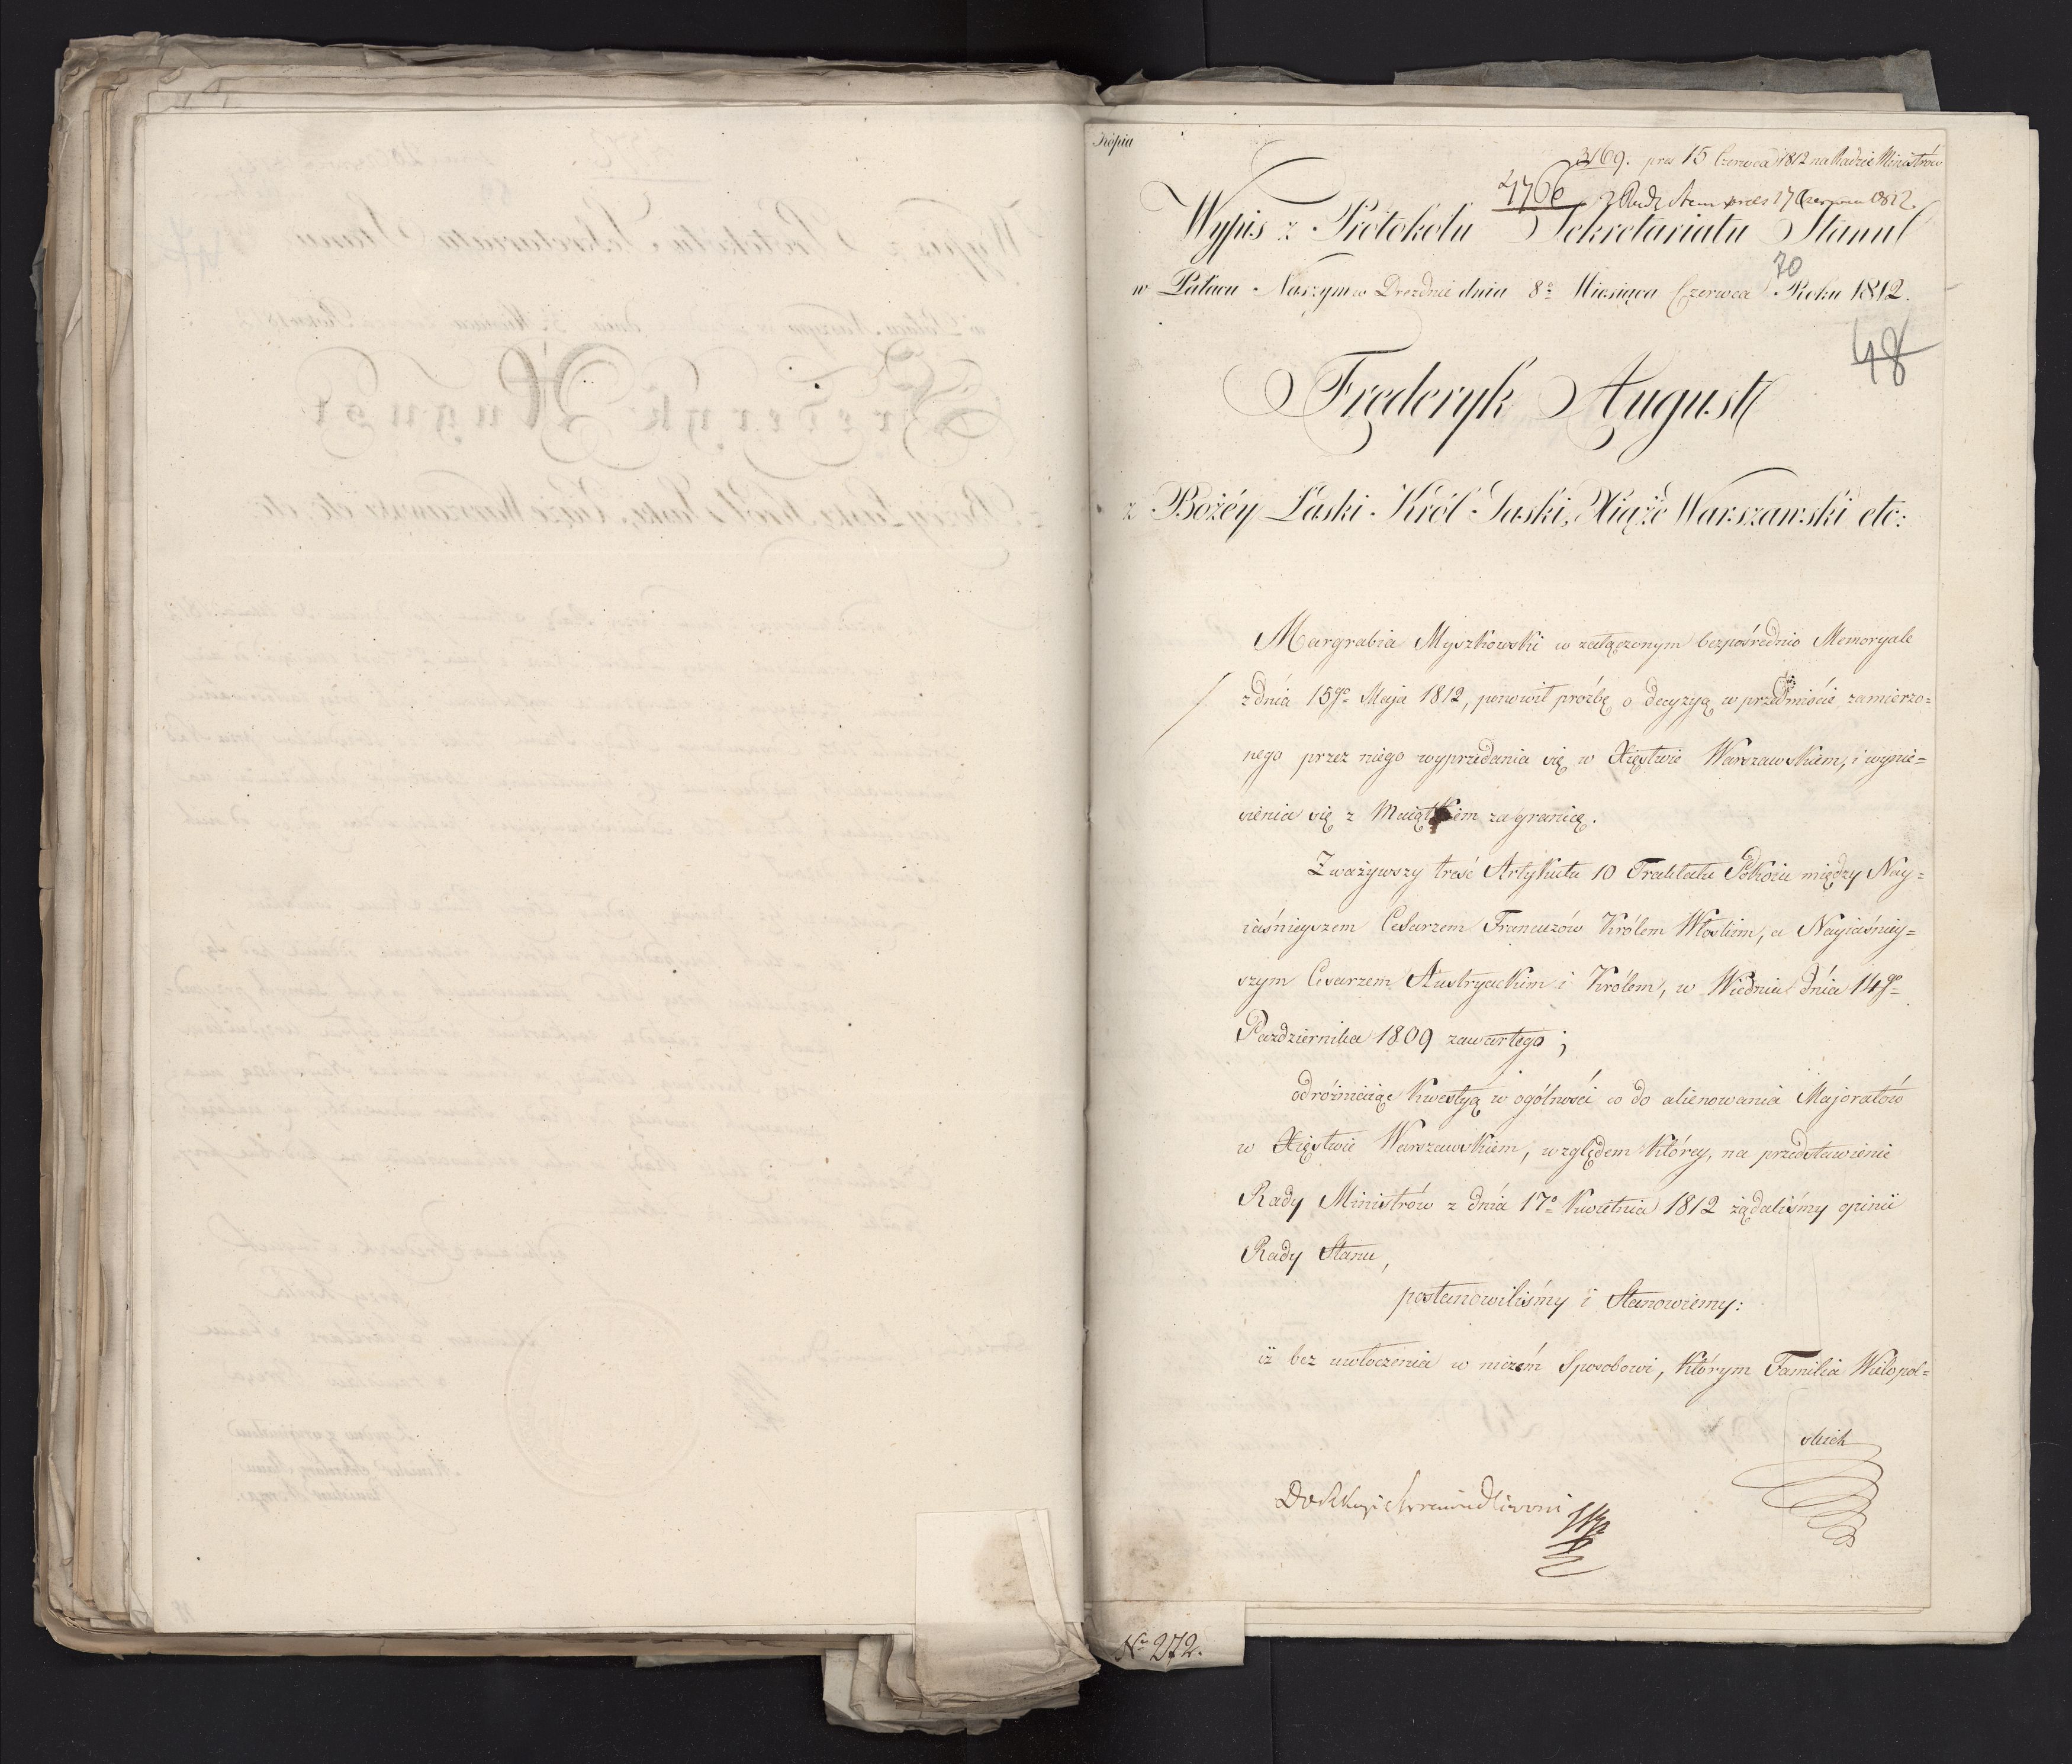 Kópia
3169. pres 15 Czerwca 1812 na Radzie Ministrów
4766 z Rady Stanu pres 17 Czerwca 1812.
Wypis z Protokołu Sekretariatu Stanu
70
w Pałacu Naszym w Dreźdnie dnia 8º Miesiąca Czerwca Roku 1812.
48
Frederyk August
z Bożéy Łaski Król Saski, Xiąże Warszawski etc:
Margrabia Myszkowski w załączonym bezpośrednio Memoryale
z dnia 15go Maja 1812, ponowił proźbę o decyzyą w przedmiocie zamierzo=
nego przez niego wyprzedania się w Xięstwie Warszawskiem, i wynie=
sienia się z Maiątkiem za granicę.
Zważywszy treść Artykułu 10 Traktatu Pokoiu między Nay=
iaśnieyszem Cesarzem Francuzów Królem Włoskim, a Nayiaśniey=
szym Cesarzem Austryackim i Królem, w Wiedniu dnia 14go
Pazdziernika 1809 zawartego;
odróżniaiąc Kwestyą w ogólności co do alienowania Majoratów
w Xięstwie Warszawskiem, względem Którey, na przedstawienie
Rady Ministrów z dnia 17º Kwietnia 1812 żądaliśmy opinii
Rady Stanu,
postanowiliśmy i Stanowiemy:
iż bez uwłoczenia w niczém Sposobowi, Którym Familia Wielopol=
skich
Do Sekcyi Sprawiedliwości
Nro 272.